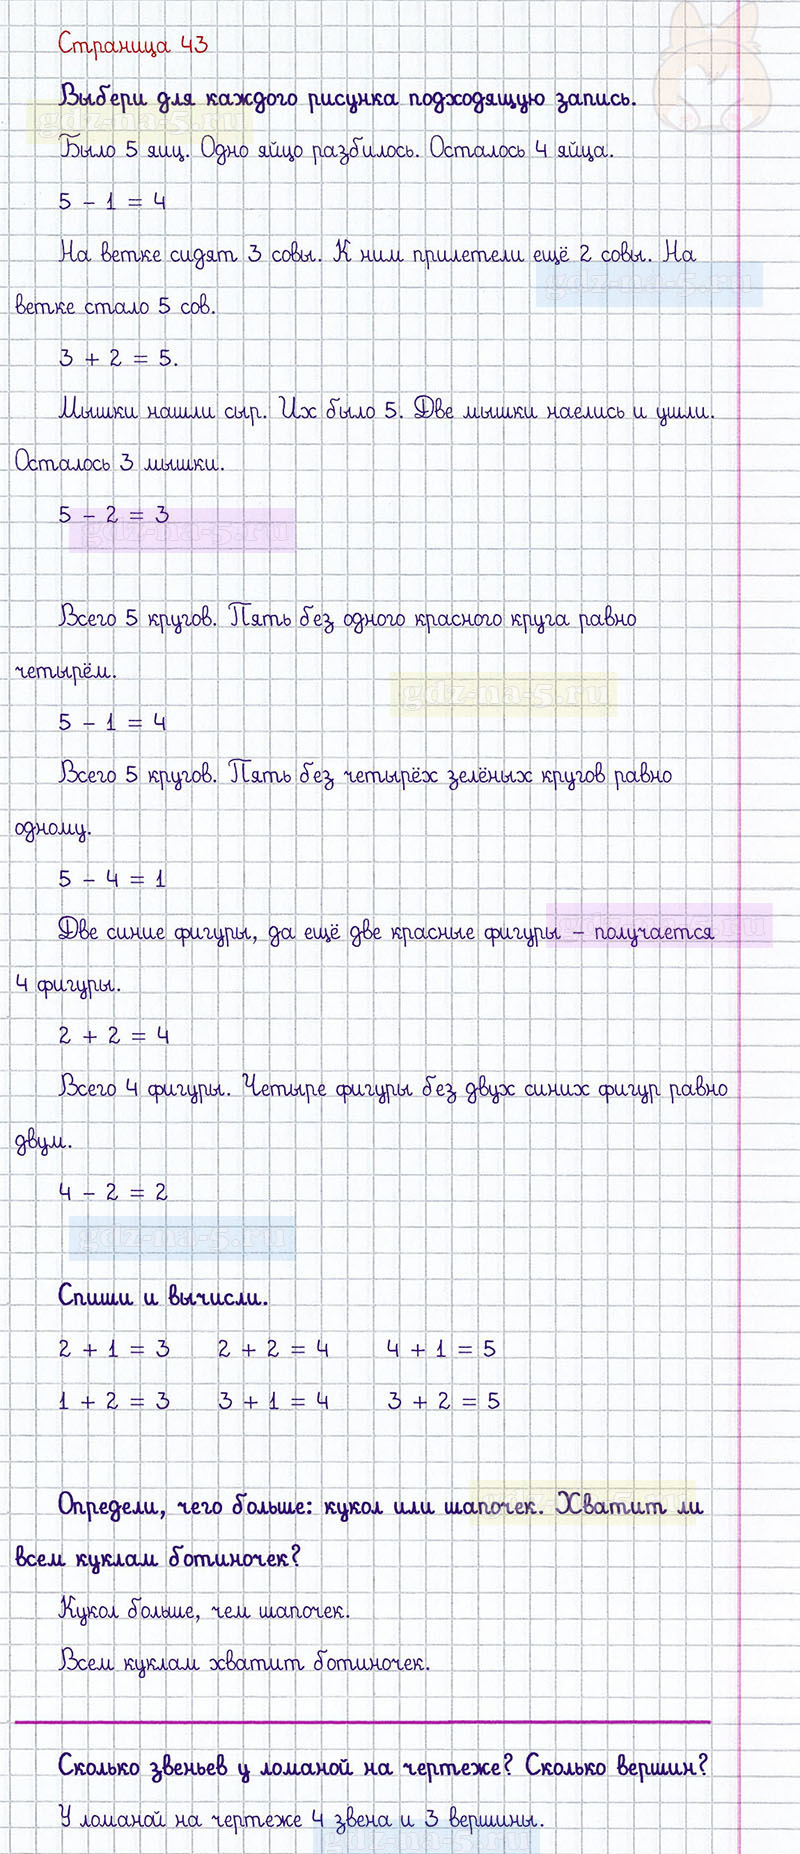 Страница 43
Выбери для каждого рисунка подходящую запись.
gdz-na-5.ru
Было 5 яиц. Одно яйцо разбилось. Осталось 4 яйца.
5 - 1 = 4
На ветке сидят 3 совы. К ним прилетели ещё 2 совы. На
gdz-na-5.ru
ветке стало 5 сов.
3 + 2 = 5.
Мышки нашли сыр. Их было 5. Две мышки наелись и ушли.
Осталось 3 мышки.
5 - 2 = 3
gdz-na-5.ru
Всего 5 кругов. Пять без одного красного круга равно
четырём.
gdz-na-5.ru
5 - 1 = 4
Всего 5 кругов. Пять без четырёх зелёных кругов равно
одному.
5 - 4 = 1
Две синие фигуры, да ещё две красные фигуры – получается
gdz-na-5.ru
4 фигуры.
2 + 2 = 4
Всего 4 фигуры. Четыре фигуры без двух синих фигур равно
двум.
4 - 2 = 2
gdz-na-5.ru
Спиши и вычисли.
2 + 1 = 3 2 + 2 = 4 4 + 1 = 5
1 + 2 = 3 3 + 1 = 4 3 + 2 = 5
gdz-na-5.ru
Определи, чего больше: кукол или шапочек. Хватит ли
всем куклам ботиночек?
Кукол больше, чем шапочек.
Всем куклам хватит ботиночек.
Сколько звеньев у ломаной на чертеже? Сколько вершин?
У ломаной на чертеже 4 звена и 3 вершины.
gdz-na-5.ru